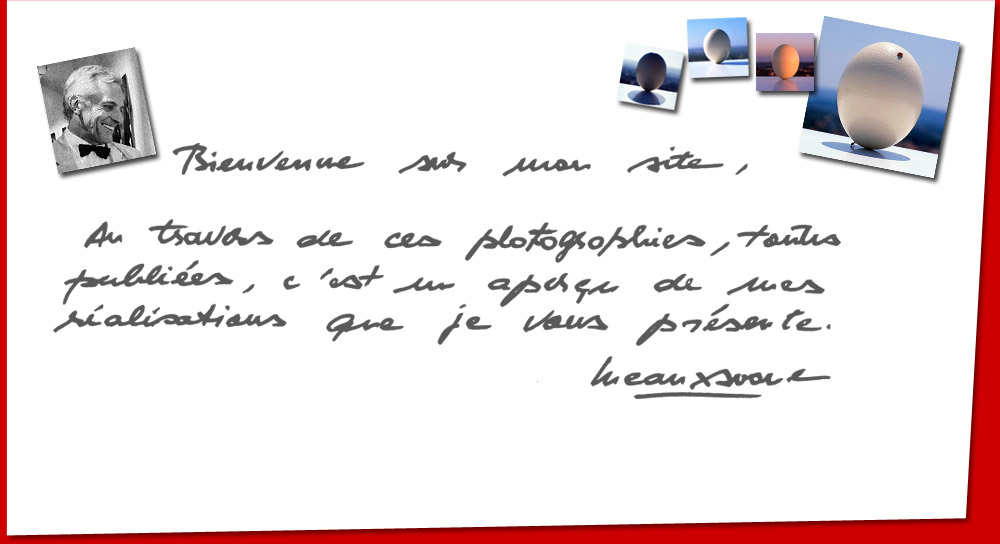 Bienvenue sur mon site,
Au travers de ces photographies, toutes
publiées, c'est un aperçu de mes
réalisations que je vous présente.